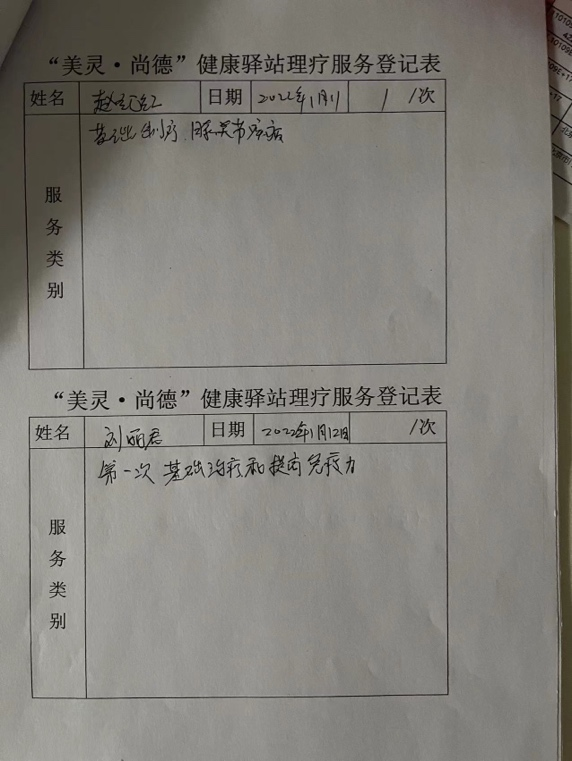 “美灵·尚德”健康驿站理疗服务登记表
姓名 赵 红 日期 2022年1月11 1 /次
服务类别
基础治疗.
“美灵·尚德”健康驿站理疗服务登记表
姓名 刘丽君 日期 2022年1月12日 /次
服务类别
第一次 基础治疗和提高免疫力